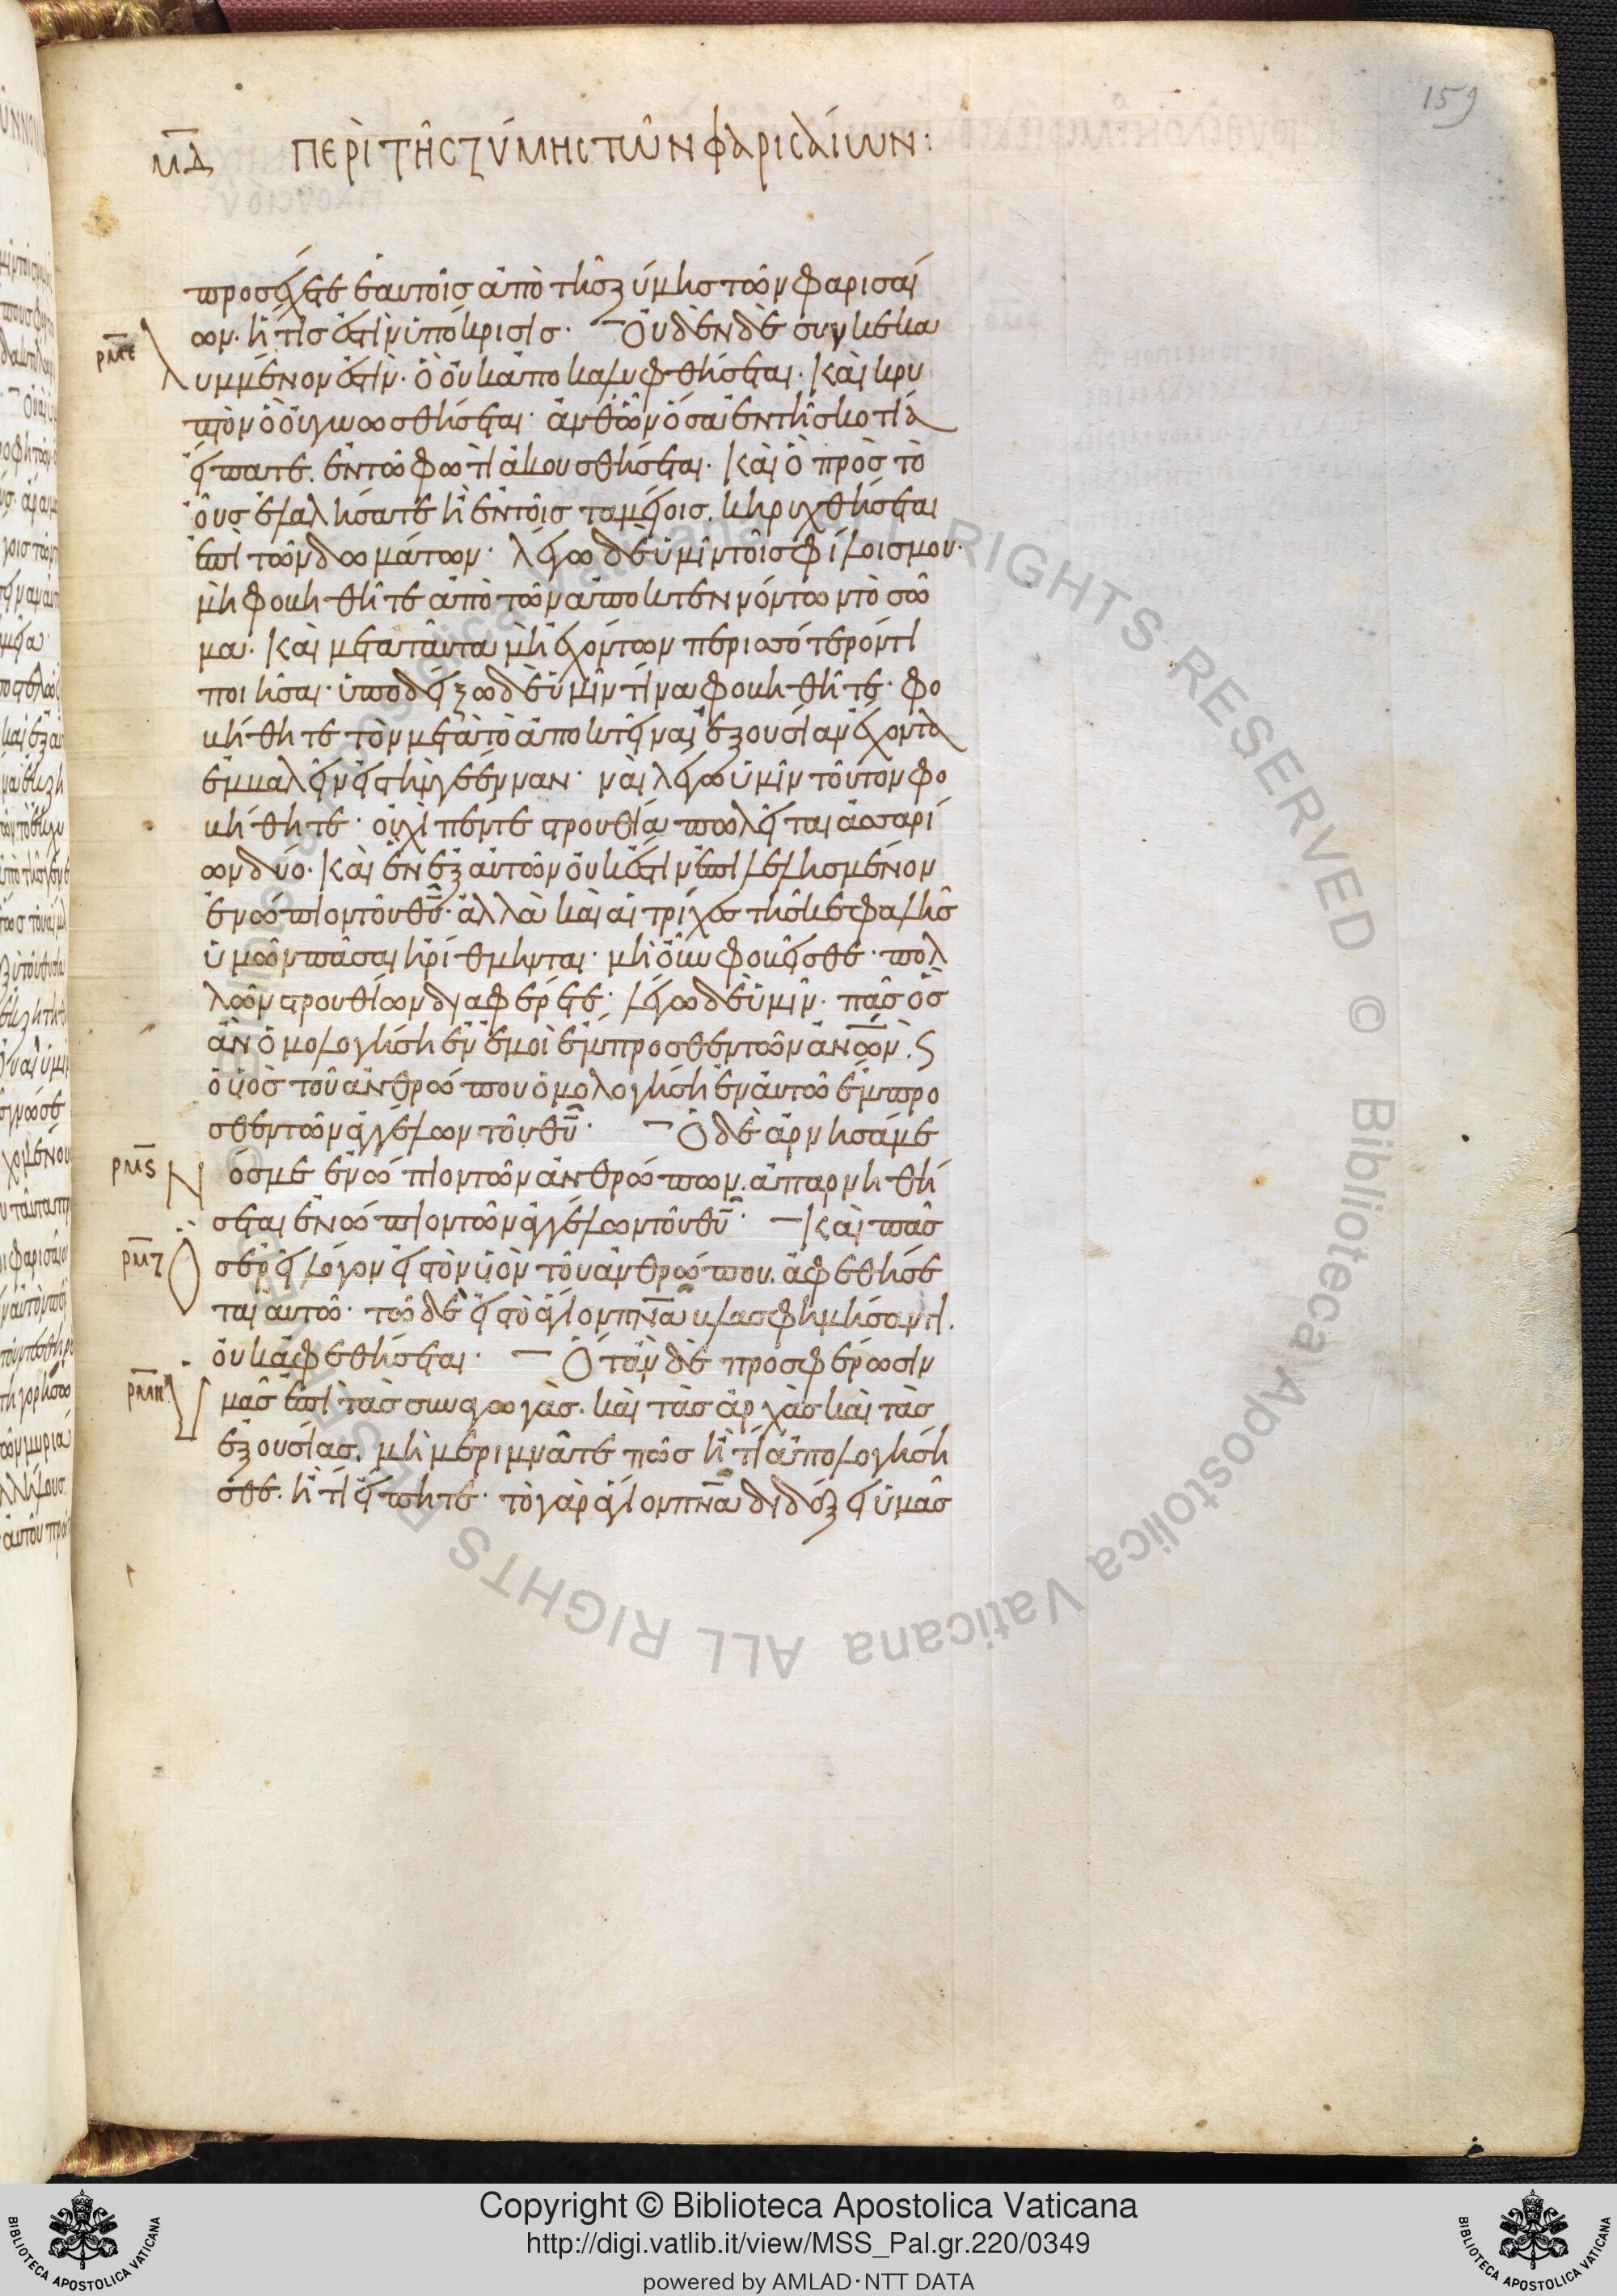 159
μδ περὶ τῆς ζύμης τῶν φαρισαίων:
προσέχετε ἑαυτοῖς ἀπὸ τῆς ζύμης τῶν φαρισαί
ων. ἥτις ἐστὶν ὑπόκρισις. Οὐδὲν δὲ συγκεκα
ρμε λυμμένον ἐστὶν. ὃ οὐκ ἀποκαλυφθήσεται. καὶ κρυ
πτὸν ὃ οὐ γνωσθήσεται. ἀνθ ὧν ὅσα ἐν τῆ σκοτία
εἴπατε. ἐν τῶ φωτὶ ἀκουσθήσεται. καὶ ὃ πρὸς τὸ
οὖς ἐλαλήσατε ἢ ἐν τοῖς ταμείοις. κηρυχθήσεται
ἐπὶ τῶν δωμάτων. λέγω δὲ ὑμῖν τοῖς φίλοις μου.
μὴ φοβηθῆτε ἀπὸ τῶν ἀποκτεννόντων τὸ σῶ
μα. καὶ μετὰ ταῦτα μὴ ἐχόντων περισσότερόν τι
ποιῆσαι. ὑποδείξω δὲ ὑμῖν τίνα φοβηθῆτε. φο
βήθητε τὸν μετὰ τὸ ἀποκτεῖναι ἐξουσίαν ἔχοντα
ἐμβαλεῖν εἰς τὴν γέενναν. ναὶ λέγω ὑμῖν τοῦτον φο
βήθητε. οὐχὶ πέντε στρουθία πωλεῖται ἀσσαρί
ων δύο. καὶ ἓν ἐξ αὐτῶν οὐκ ἔστιν ἐπιλελησμένον
ἐνώπιον τοῦ θυ. ἀλλὰ καὶ αἱ τρίχες τῆς κεφαλῆς
ὑμῶν πᾶσαι ἠρίθμηνται. μὴ οὖν φοβεῖσθε. πολ
λῶν στρουθίων διαφέρετε. λέγω δὲ ὑμῖν. πᾶς ὃς
ἂν ὁμολογήση ἐν ἐμοὶ ἔμπροσθεν τῶν ἀνων. ϛ
ὁ υἱὸς τοῦ ἀνθρώπου ὁμολογήση ἐν αὐτῶ ἔμπρο
σθεν τῶν ἀγγέλων τοῦ θυ. Ὁ δὲ ἀρνησάμε
ρμϛ νόσ με ἐνώπιον τῶν ἀνθρώπων. ἀπαρνηθή
σεται ἐνώπιον τῶν ἀγγέλων τοῦ θυ. Καὶ πᾶς
ρμζ ὃς ἐρεῖ λόγον εἰς τὸν υἱὸν τοῦ ἀνθρώπου. ἀφεθήσε
ται αὐτῶ. τῶ δὲ εἰς τὸ ἅγιον πνα βλασφημήσαντι.
οὐκ ἀφεθήσεται. Ὅταν δὲ προσφέρωσιν
ρμη ὑμᾶς ἐπὶ τὰς συναγωγὰς. καὶ τὰς ἀρχὰς καὶ τὰς
ἐξουσίας. μὴ μεριμνᾶτε πῶς ἢ τί ἀπολογήση
σθε. ἢ τί εἴπητε. τὸ γὰρ ἅγιον πνα διδάξει ὑμᾶς
Copyright © Biblioteca Apostolica Vaticana
http://digi.vatlib.it/view/MSS_Pal.gr.220/0349
powered by AMLAD·NTT DATA
BIBLIOTECA APOSTOLICA VATICANA
BIBLIOTECA APOSTOLICA VATICANA
© Biblioteca Apostolica Vaticana ALL RIGHTS RESERVED © Biblioteca Apostolica Vaticana ALL RIGHTS RESERVED